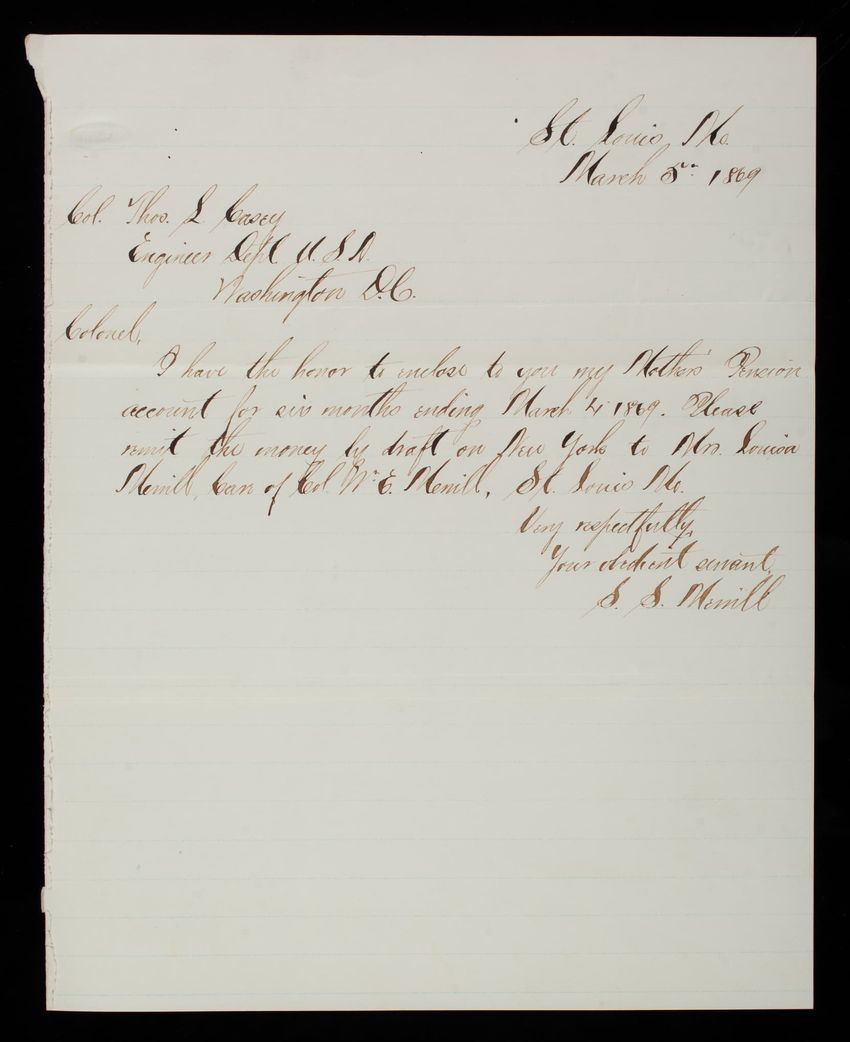 St. Louis, Mo.
March 5th 1869
Col. Thos. L. Casey
Engineer Dept. U.S.A.
Washington D.C.
Colonel,
I have the honor to enclose to you my Mother's Pension
account for six months ending March 4, 1869. Please
remit the money by draft on New York to Mrs. Louisa
Merrill, Care of Col. Wm. E. Merrill, St. Louis Mo.
Very respectfully,
Your obedient servant,
S. S. Merrill